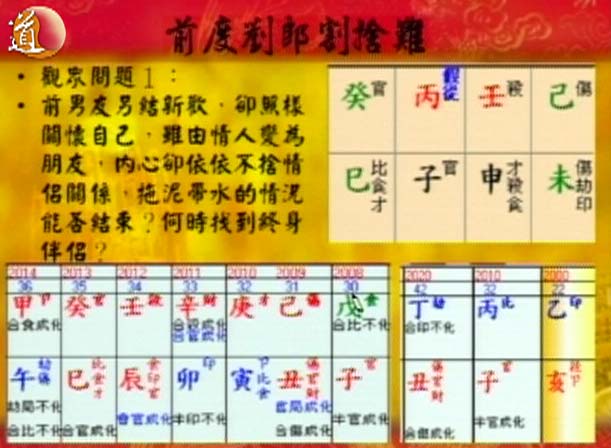 道
前度劉郎割捨難
• 觀眾問題1：
• 前男友另結新歡，卻照樣
關懷自己，雖由情人變為
朋友，內心卻依依不捨情
侶關係，拖泥帶水的情況
能否結束？何時找到終身
伴侶？
癸官 丙假從 壬殺 己傷
巳比食才 子官 申才殺食 未傷劫印
2014 2013 2012 2011 2010 2009 2008
36 35 34 33 32 31 30
甲卩 癸官 壬殺 辛財 庚才 己傷 戊食
合食成化 合殺成化 合比不化
合官成化
午劫傷 巳比食才 辰食印官 卯印 寅卩比食 丑傷官財 子官
劫局不化 會官成化 半印不化 官局成化 半官成化
合比不化 合官成化 合傷成化
2020 2010 2000
42 32 22
丁劫 丙比 乙印
合印不化
丑傷官財 子官 亥殺卩
合傷成化 半官成化